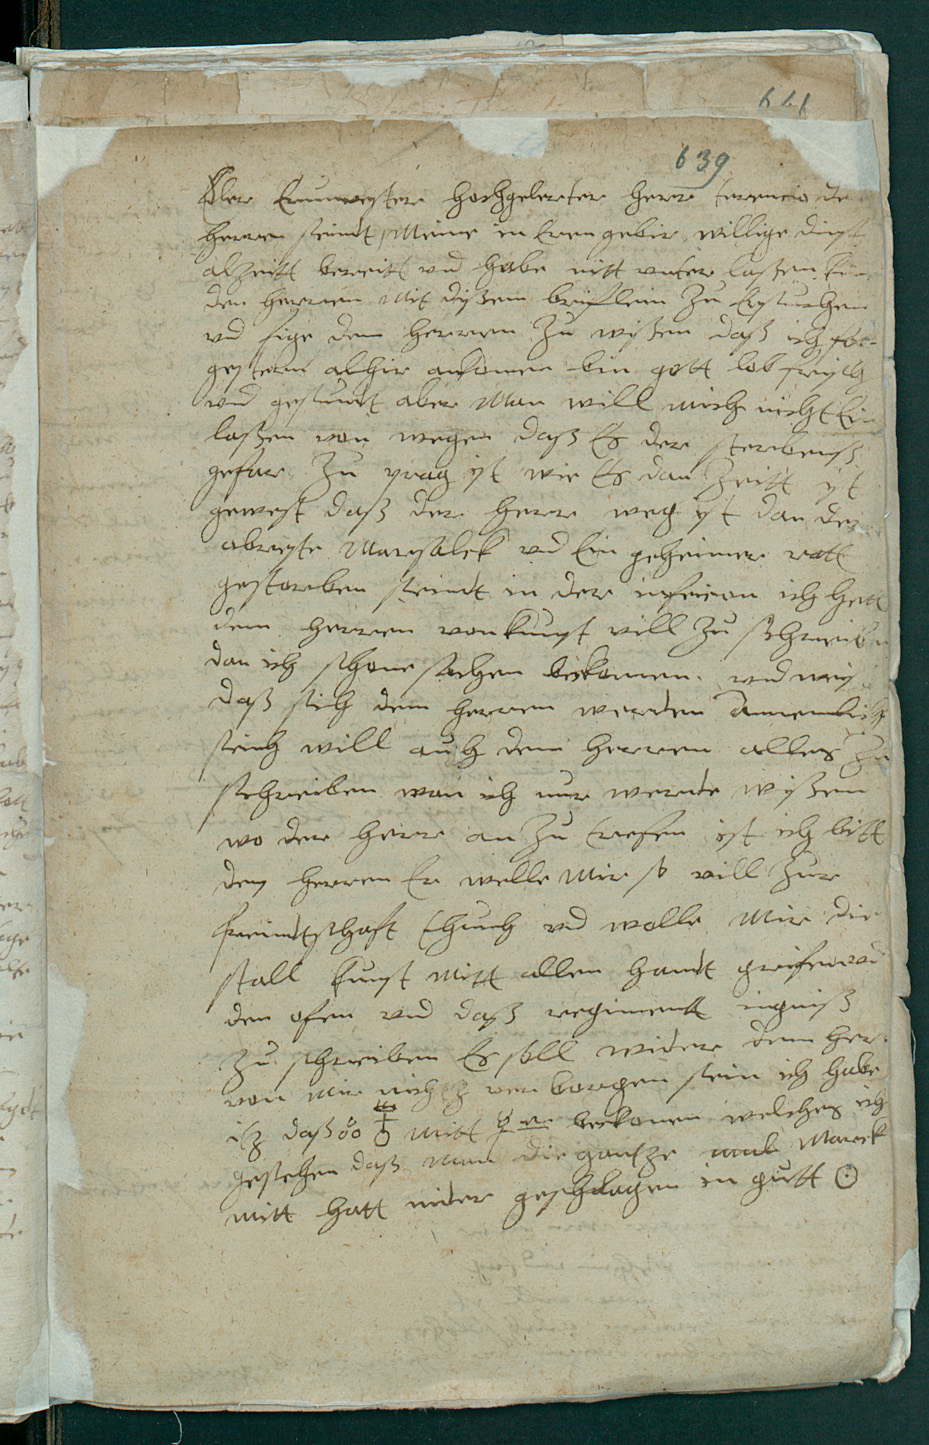 641
639
Edler Ernvester hochgelerter herr terencio de
herren seindt Meine in Eren gebir willige dinst
alzeitt bereitt vnd habe nitt vnter lasen
den herren Mit disem briflein Zu
vnd fige dem herren Zu wissen daß ich for-
gestern alhir ankomen bin gott lob frisch
vnd gesundt aber Man will mich nicht Ein
laßen von wegen daß Es der sterbenß
gefar Zu prag ist wie Es dan Zeitt ist
gewest daß der herr weg ist dan der
obryste Marsalck vnd Ein geheimer ratt
gestorben seindt in der ich hett
dem herren von kunst vill Zu schreiben
dan ich schone sachen bekomen vnd weiß
daß sich dem herren werden annemlich
sein will auch dem herren alles Zu
schreiben wan ich nur werde wissen
wo der herr an Zu trefen ist ich bitt
den herren Er welle Mir so vill Zur
freindtschaft thuen vnd wolle Mir die
stall kunst Mitt allen handt grifen vnd
den ofen vnd daß regiment
Zu schreiben Es soll wider dem her
von Mir nichtz verborgen sein ich habe
itz daß Mitt bekomen welches ich
gesehen daß Man die gantze Marck
mitt hatt nider geschlagen in gutt ☉